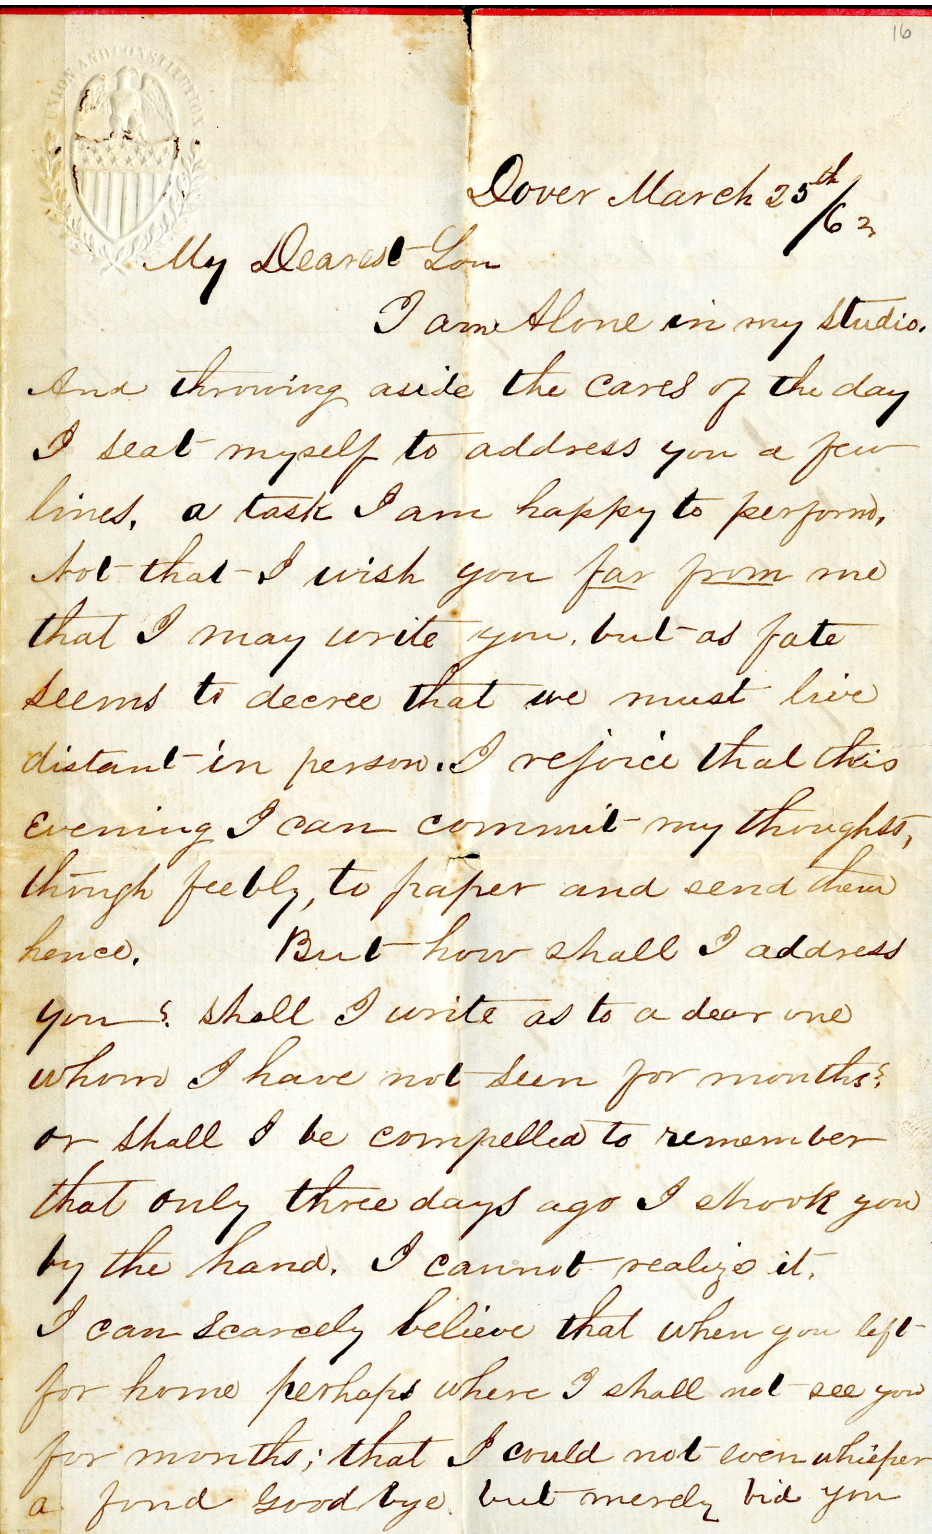 16
UNION AND CONSTITUTION
Dover March 25th/62
My Dearest Lou
I am Alone in my studio.
And throwing aside the cares of the day
I seat myself to address you a few
lines, a task I am happy to perform,
Not that I wish you far from me
that I may write you, but as fate
seems to decree that we must live
distant in person. I rejoice that this
Evening I can commit my thoughts,
though feebly, to paper and send them
hence. But how shall I address
you? shall I write as to a dear one
whom I have not seen for months?
or shall I be compelled to remember
that only three days ago I shook you
by the hand. I cannot realize it.
I can scarcely believe that when you left
for home perhaps where I shall not see you
for months; that I could not even whisper
a fond good bye. but merely bid you